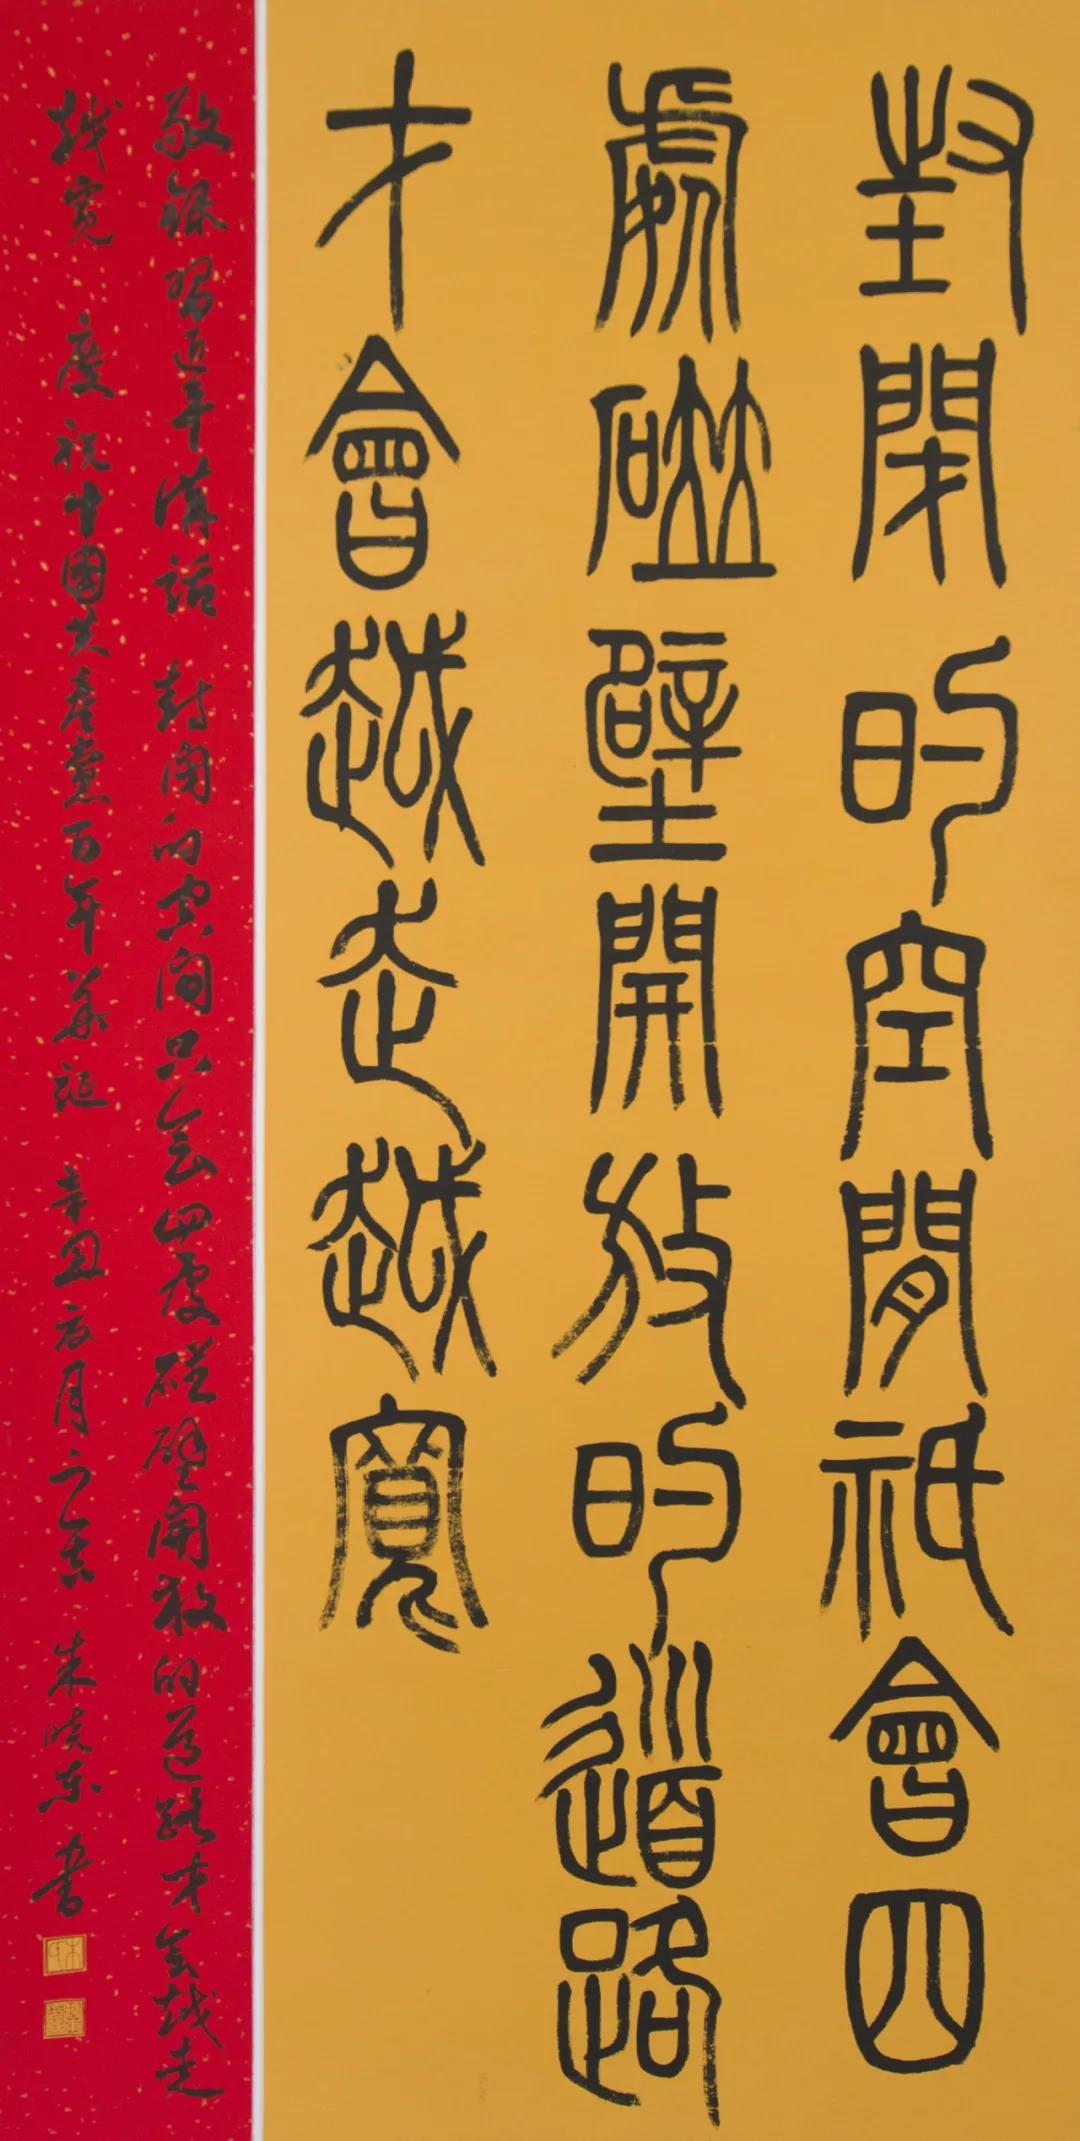 封閉的空間祇會四
處碰壁開放的道路
才會越走越寬
敬録習近平講話 封閉的空間只會四處碰壁開放的道路才會越走
越寬 慶祝中國共產黨百年華誕 辛丑月之吉 朱晓东书